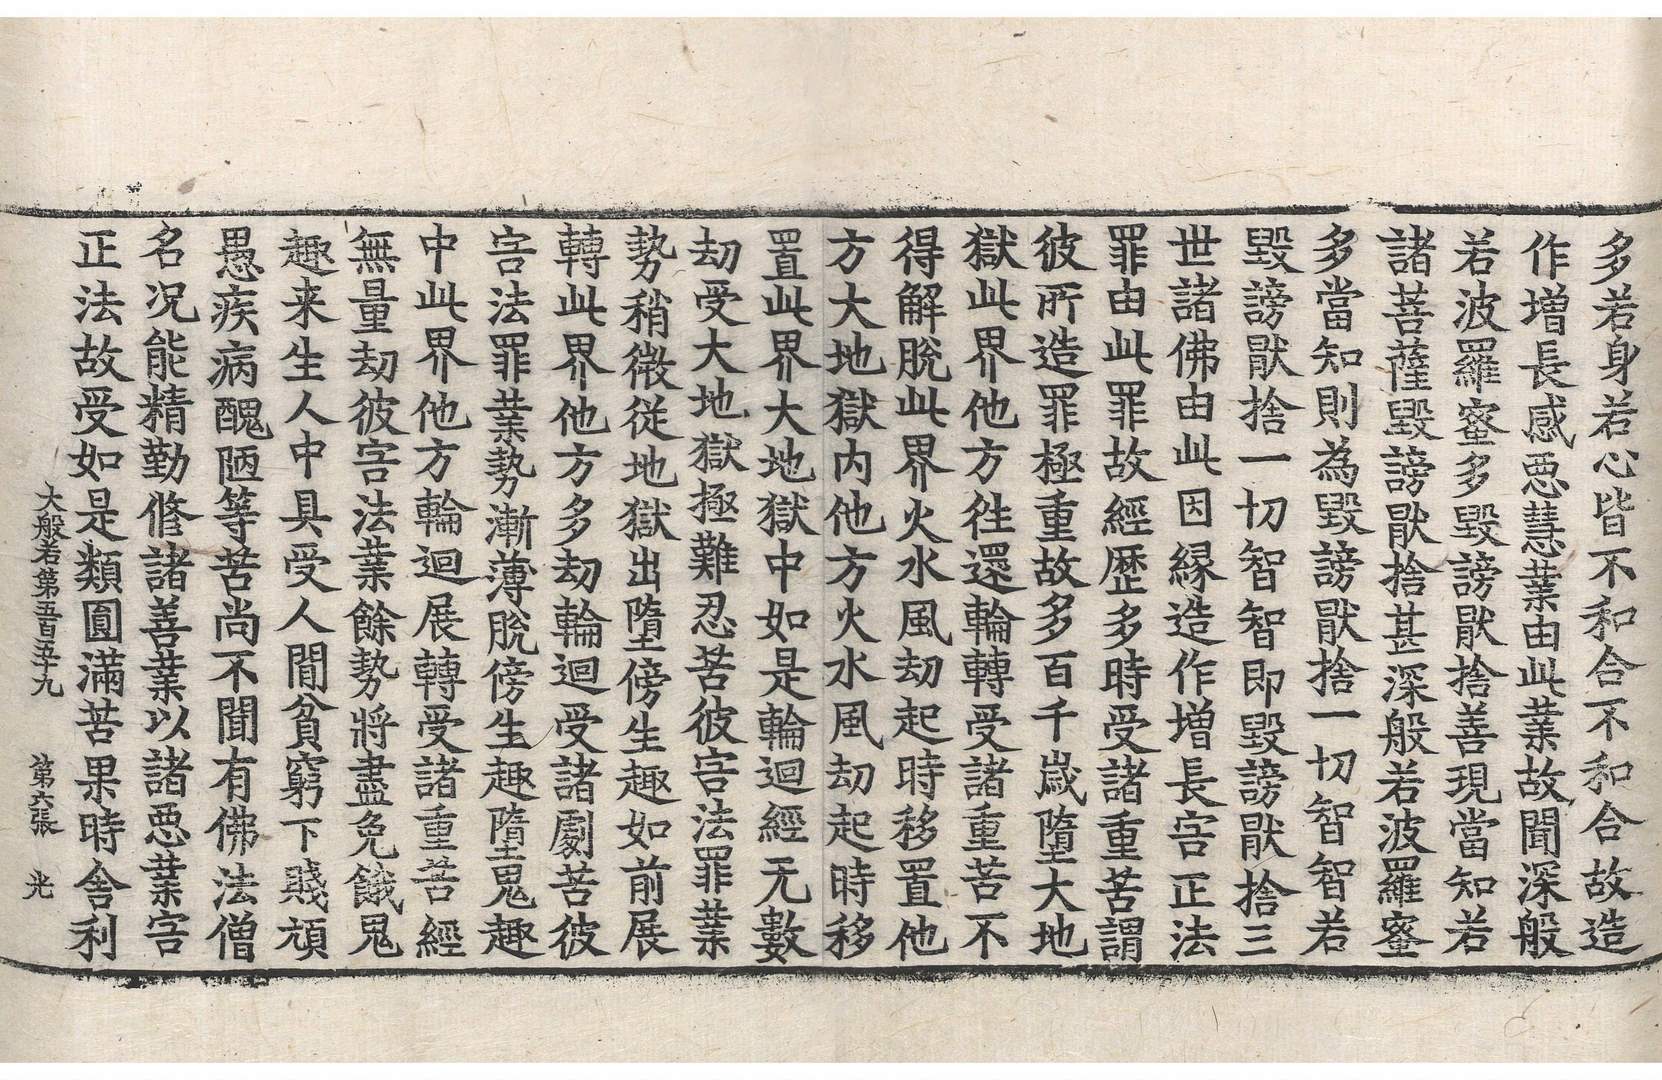 多若身若心皆不和合不和合故造
作增長感惡慧業由此業故聞深般
若波羅蜜多毀謗猒捨善現當知若
諸菩薩毀謗猒捨甚深般若波羅蜜
多當知則為毀謗猒捨一切智智若
毀謗猒捨一切智智即毀謗猒捨三
世諸佛由此因緣造作增長害正法
罪由此罪故經歷多時受諸重苦謂
彼所造罪極重故多百千歲墮大地
獄此界他方往還輪轉受諸重苦不
得解脫此界火水風劫起時移置他
方大地獄內他方火水風劫起時移
置此界大地獄中如是輪迴經无數
劫受大地獄極難忍苦彼害法罪業
勢稍微從地獄出墮傍生趣如前展
轉此界他方多劫輪迴受諸劇苦彼
害法罪業勢漸薄脫傍生趣墮鬼趣
中此界他方輪迴展轉受諸重苦經
無量劫彼害法業餘勢將盡免餓鬼
趣来生人中具受人間貧窮下賤頑
愚疾病醜陋等苦尚不聞有佛法僧
名况能精勤修諸善業以諸惡業害
正法故受如是類圓滿苦果時舍利
大般若第五百五十九　第六張　光